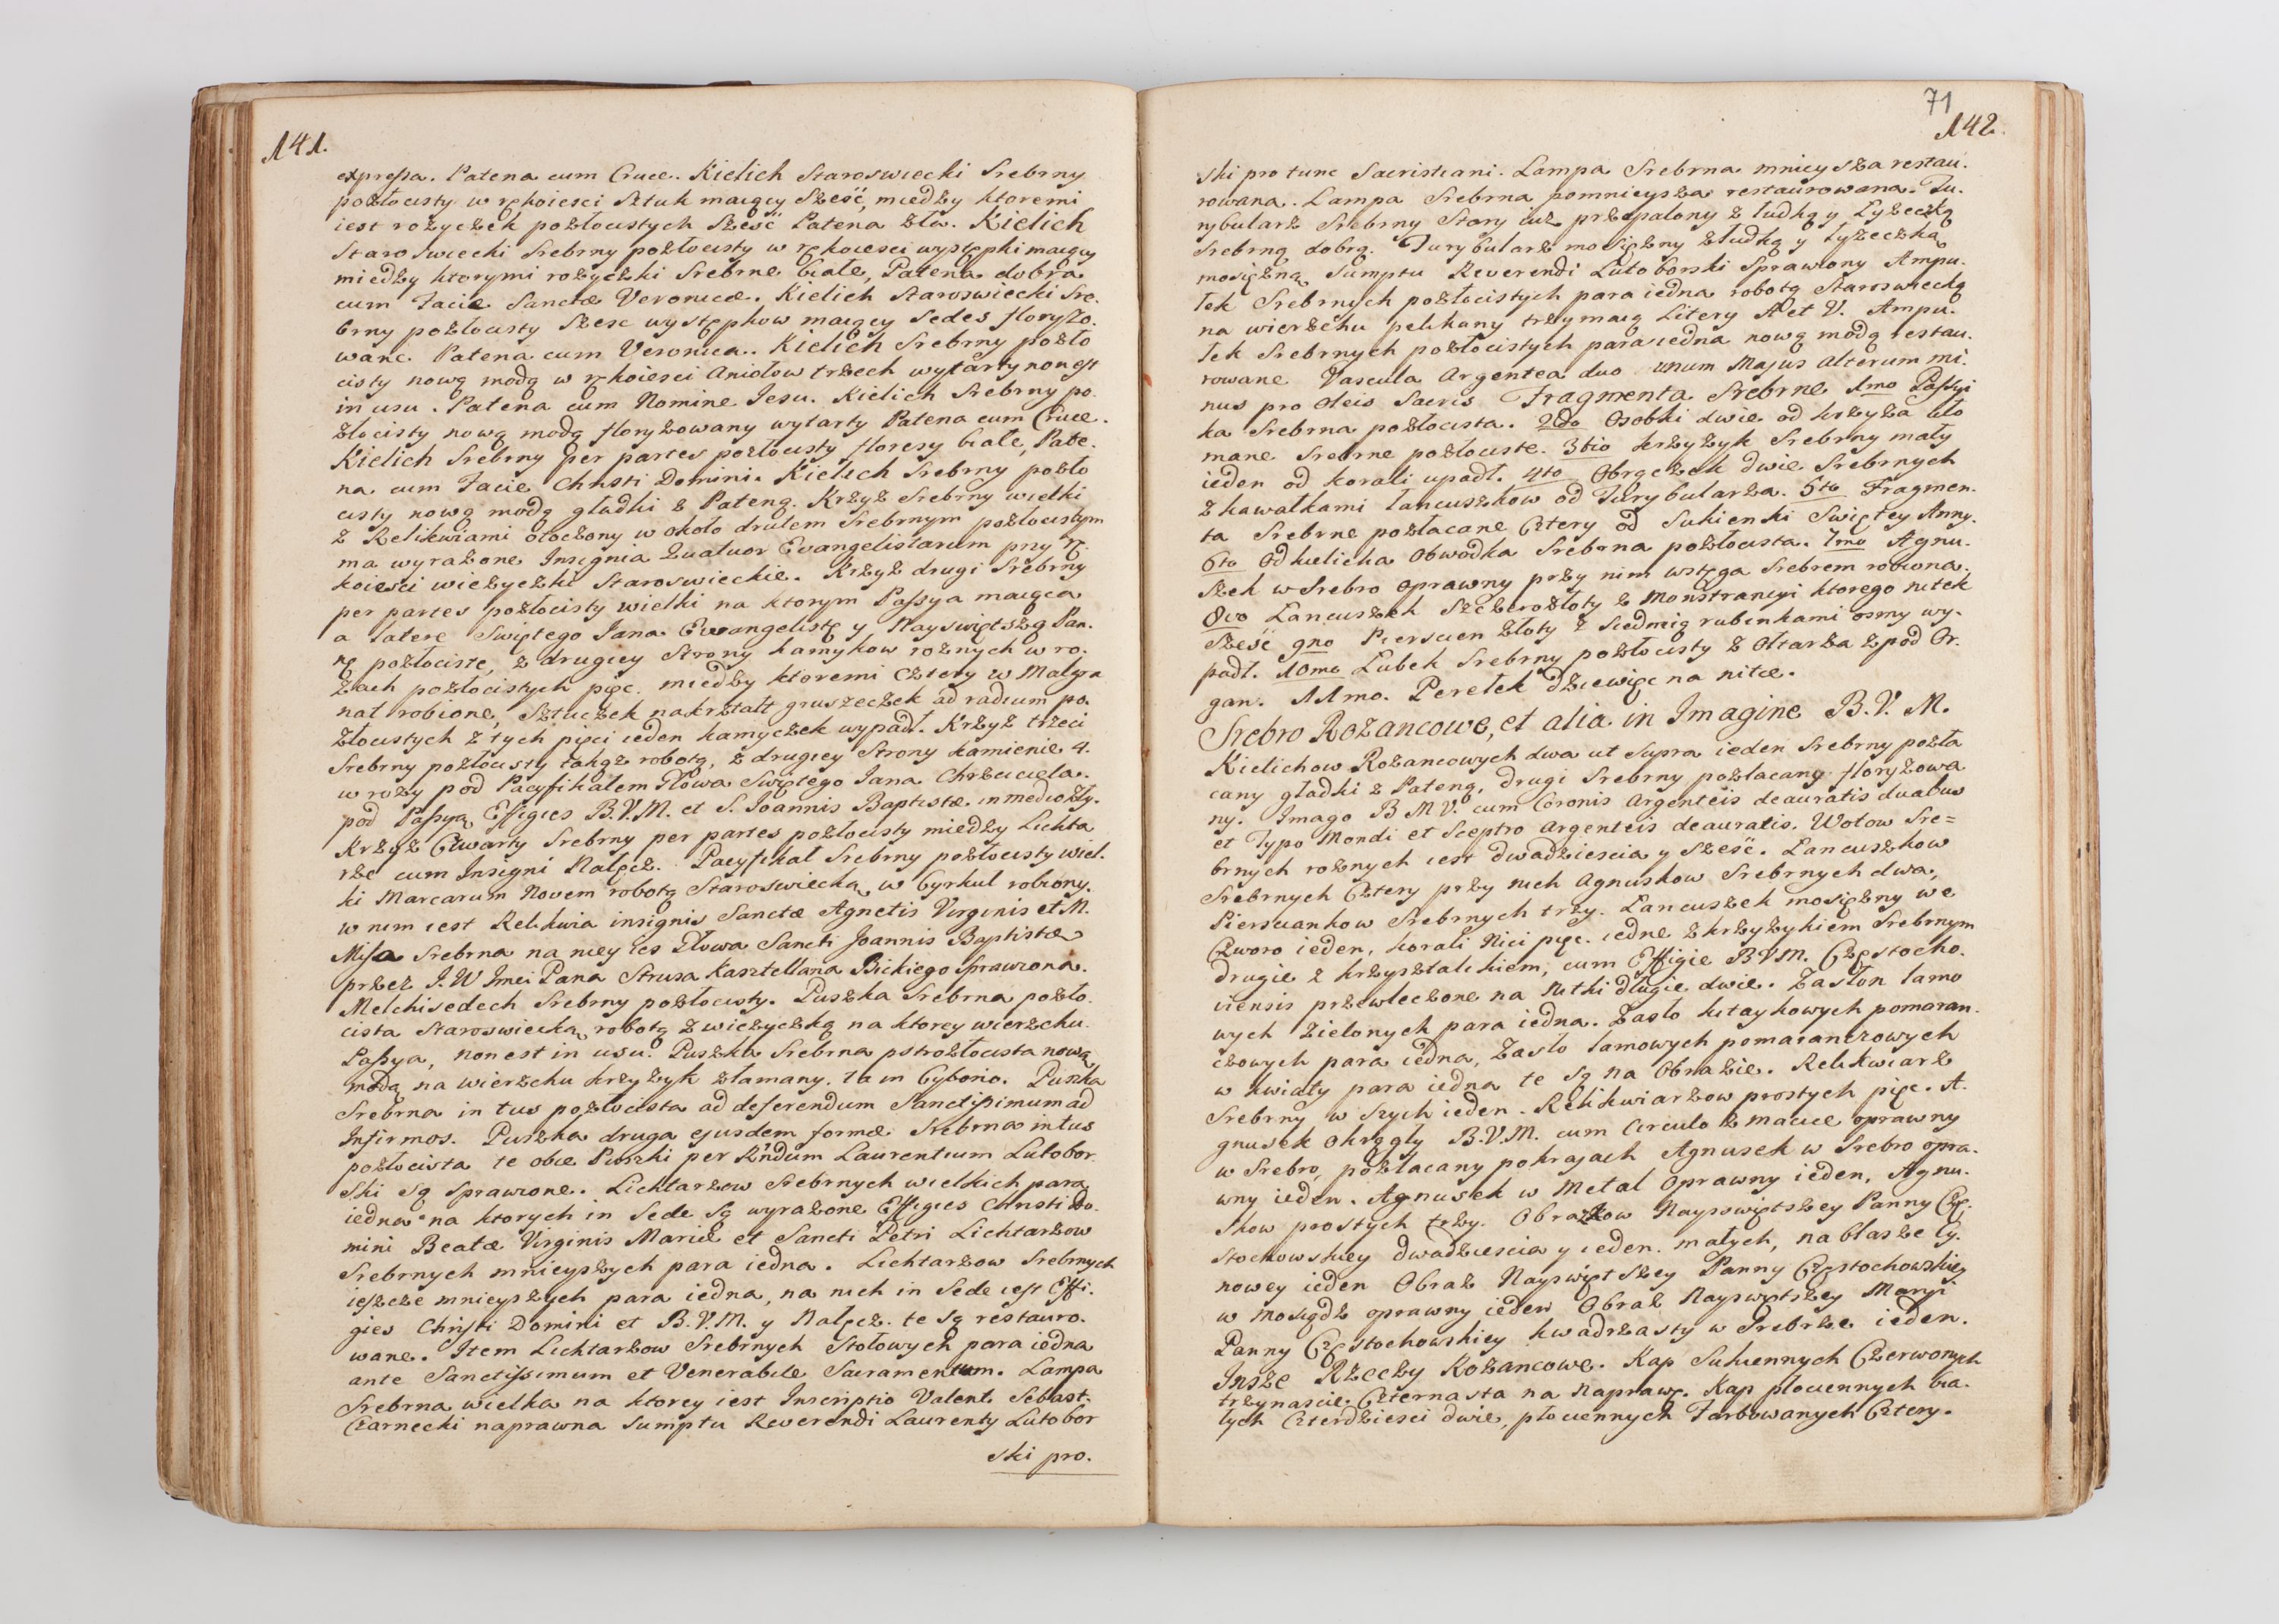 141.
expressa. Patena cum Cruce. Kielich Staroswiecki Srebrny
pozłocisty w rękoiesci Sztuk maiący Sześć, miedzy ktoremi
iest rozyczek pozłocistych Sześć Patena zła. Kielich
Staroswiecki Srebrny pozłocisty w rękoiesci występki maiący
miedzy ktorymi rozyczki Srebrne białe, Patena dobra
cum Facie Sanctæ Veronicæ. Kielich Staroswiecki Sre.
brny pozłocisty Szesc występkow maiący Sedes floryzo.
wane. Patena cum Veronica. Kielich Srebrny pozło
cisty nową modą w rękoiesci Aniołow trzech wytarty non est
in usu. Patena cum Nomine Jesu. Kielich Srebrny po.
złocisty nową modą floryzowany wytarty Patena cum Cruce.
Kielich Srebrny per partes pozłocisty floresy białe, Pate.
na cum Facie Christi Domini. Kielich Srebrny pozło
cisty nową modą gładki z Pateną. Krzyz Srebrny wielki
z Relikwiami otoczony w około drutem Srebrnym pozłocistym
ma wyrazone Insignia Quatuor Evangelistarum przy rę.
koiesci wiezyczki Staroswieckie. Krzyz drugi Srebrny
per partes pozłocisty wielki na ktorym Passya maiąca
a latere Swiętego Jana Ewangelistę y Nayswiętszą Pan.
nę pozłociste, z drugiey Strony kamykow roznych w ro.
zach pozłocistych pięc. miedzy ktoremi Cztery w Malgra
nat robione, Sztuczek nakrztałt gruszeczek ad radium po.
złocistych z tych pięci ieden kamyczek wypadł. Krzyz trzeci
Srebrny pozłocisty takąz robotą, z drugiey Strony kamienie 4.
w rozy pod Pacyfikałem Głowa Swiętego Jana Chrzciciela.
pod Passyą Effigies B.V.M. et S. Joannis Baptistæ in medio
Krzyz Czwarty Srebrny per partes pozłocisty miedzy Lichta
rze cum Insigni Nałęcz. Pacyfikał Srebrny pozłocisty wiel.
ki Marcarum Novem robotą Staroswiecką w Cyrkuł robiony.
w nim iest Relikwia insignis Sanctæ Agnetis Virginis et M.
Missa Srebrna na niey ies Głowa Sancti Joannis Baptistæ
przez J.W Jmci Pana Strusa Kasztellana Bickiego Sprawiona.
Melchisedech Srebrny pozłocisty. Puszka Srebrna pozło.
cista Staroswiecką robotą z wiezyczką na ktorey wierzchu
Passya, non est in usu. Puszka Srebrna pstrozłocista nową
modą na wierzchu krzyzyk złamany. ta in Cyborio. Puszka
Srebrna in tus pozłocista ad deferendum Sanctissimum ad
Infirmos. Puszka druga ejusdem formæ Srebrna intus
pozłocista te obie Puszki per Rndum Laurentium Lutobor
ski są Sprawione. Lichtarzow Srebrnych wielkich para
iedna na ktorych in Sede są wyrazone Effigies Christi Do.
mini Beatæ Virginis Mariæ et Sancti Petri Lichtarzow
Srebrnych mnieyszych para iedna. Lichtarzow Srebrnych
ieszcze mnieyszych para iedna, na nich in Sede iest Effi.
gies Christi Domini et B.V.M. y Nałęcz. te są restauro.
wane. Item Lichtarzow Srebrnych Stołowych para iedna
ante Sanctissimum et Venerabile Sacramentum. Lampa
Srebrna wielka na ktorey iest Inscriptio Valent. Sebast.
Czarnecki naprawna Sumptu Reverendi Laurenty Lutobor
ski pro.
71
142.
ski pro tunc Sacristiani. Lampa Srebrna mnieysza restau.
rowana. Lampa Srebrna pomnieysza restaurowana. Tu.
rybularz Srebrny Stary iuz przepalony z łudką y Łyzeczką
Srebrną dobrą. Turybularz mosięzny złudką y łyzeczką
mosięzną Sumptu Reverendi Lutoborski Sprawiony Ampu.
łek Srebrnych pozłocistych para iedna robotą Staroswiecką
na wierzchu pelikany trzymaią Litery A et V. Ampu.
łek Srebrnych pozłocistych para iedna nową modą restau.
rowane Vascula Argentea duo unum Majus alterum mi.
nus pro Oleis Sacris Fragmenta Srebrne 1mo Passyi
ka Srebrna pozłocista. 2do Osobki dwie od krzyza uło
mane Srebrne pozłociste. 3tio krzyzyk Srebrny mały
ieden od korali upadł. 4to Obrączek dwie Srebrnych
z kawałkami łancuszkow od Turybularza. 5to Fragmen.
ta Srebrne pozłacane Cztery od Sukienki Swiętey Anny.
6to Od kielicha Obwodka Srebrna pozłocista. 7mo Agnu.
szek w Srebro oprawny przy nim wstęga Srebrem robiona.
8vo Lancuszek Szczerozłoty z Monstrancyi ktorego nitek
Sześć 9no Pierscien Złoty z Siedmią rubinkami osmy wy.
padł. 10mo Lubek Srebrny pozłocisty z Ołtarza zpod Or.
gan. 11mo. Perełek dziewięc na nitce.
Srebro Rozancowe, et alia in Imagine B.V.M.
Kielichow Rozancowych dwa ut Supra ieden Srebrny pozła
cany gładki z Pateną, drugi Srebrny pozłacany floryzowa
ny. Imago B M V. cum Coronis Argenteis deauratis duabus
et Typo Mondi et Sceptro Argenteis deauratis. Wotow Sre=
brnych roznych iest dwadziescia y Sześć. Lancuszkow
Srebrnych Cztery przy nich Agnuskow Srebrnych dwa,
Pierscionkow Srebrnych trzy. Lancuszek mosięzny we
Czworo ieden, korali Nici pięc. iedne z krzyzykiem Srebrnym
drugie z krzyształikiem, cum Effigie BVM. Częstocho.
viensis przewleczone na Nitki długie dwie. Zasłon lamo
wych zielonych para iedna. Zasło kitaykowych pomaran.
czowych para iedna, Zasło lamowych pomaranczowych
w kwiaty para iedna te są na Obrazie. Relikwiarz
Srebrny w Szych ieden. Relikwiarzow prostych pięc. A.
gnusek Okrągły B.V.M. cum Circulo z macice oprawny
w Srebro, pozłacany pokrajach Agnusek w Srebro opra.
wny ieden. Agnusek w Metal Oprawny ieden, Agnu.
skow prostych trzy. Obrazkow Nayswiętszey Panny Czę.
stochowskiey dwadziescia y ieden. małych, na blasze Cy.
nowey ieden Obraz Nayswiętszey Panny Częstochowskiey
w mosiądz oprawny ieden Obraz Nayswiętszey Maryi
Panny Częstochowskiey kwadrzasty w Srebrze ieden.
Insze Rzeczy Rozancowe. Kap Sukiennych Czerwonych
trzynascie, Czternasta na Naprawę. Kap płociennych bia.
łych Czterdziesci dwie, płociennych Farbowanych Cztery.